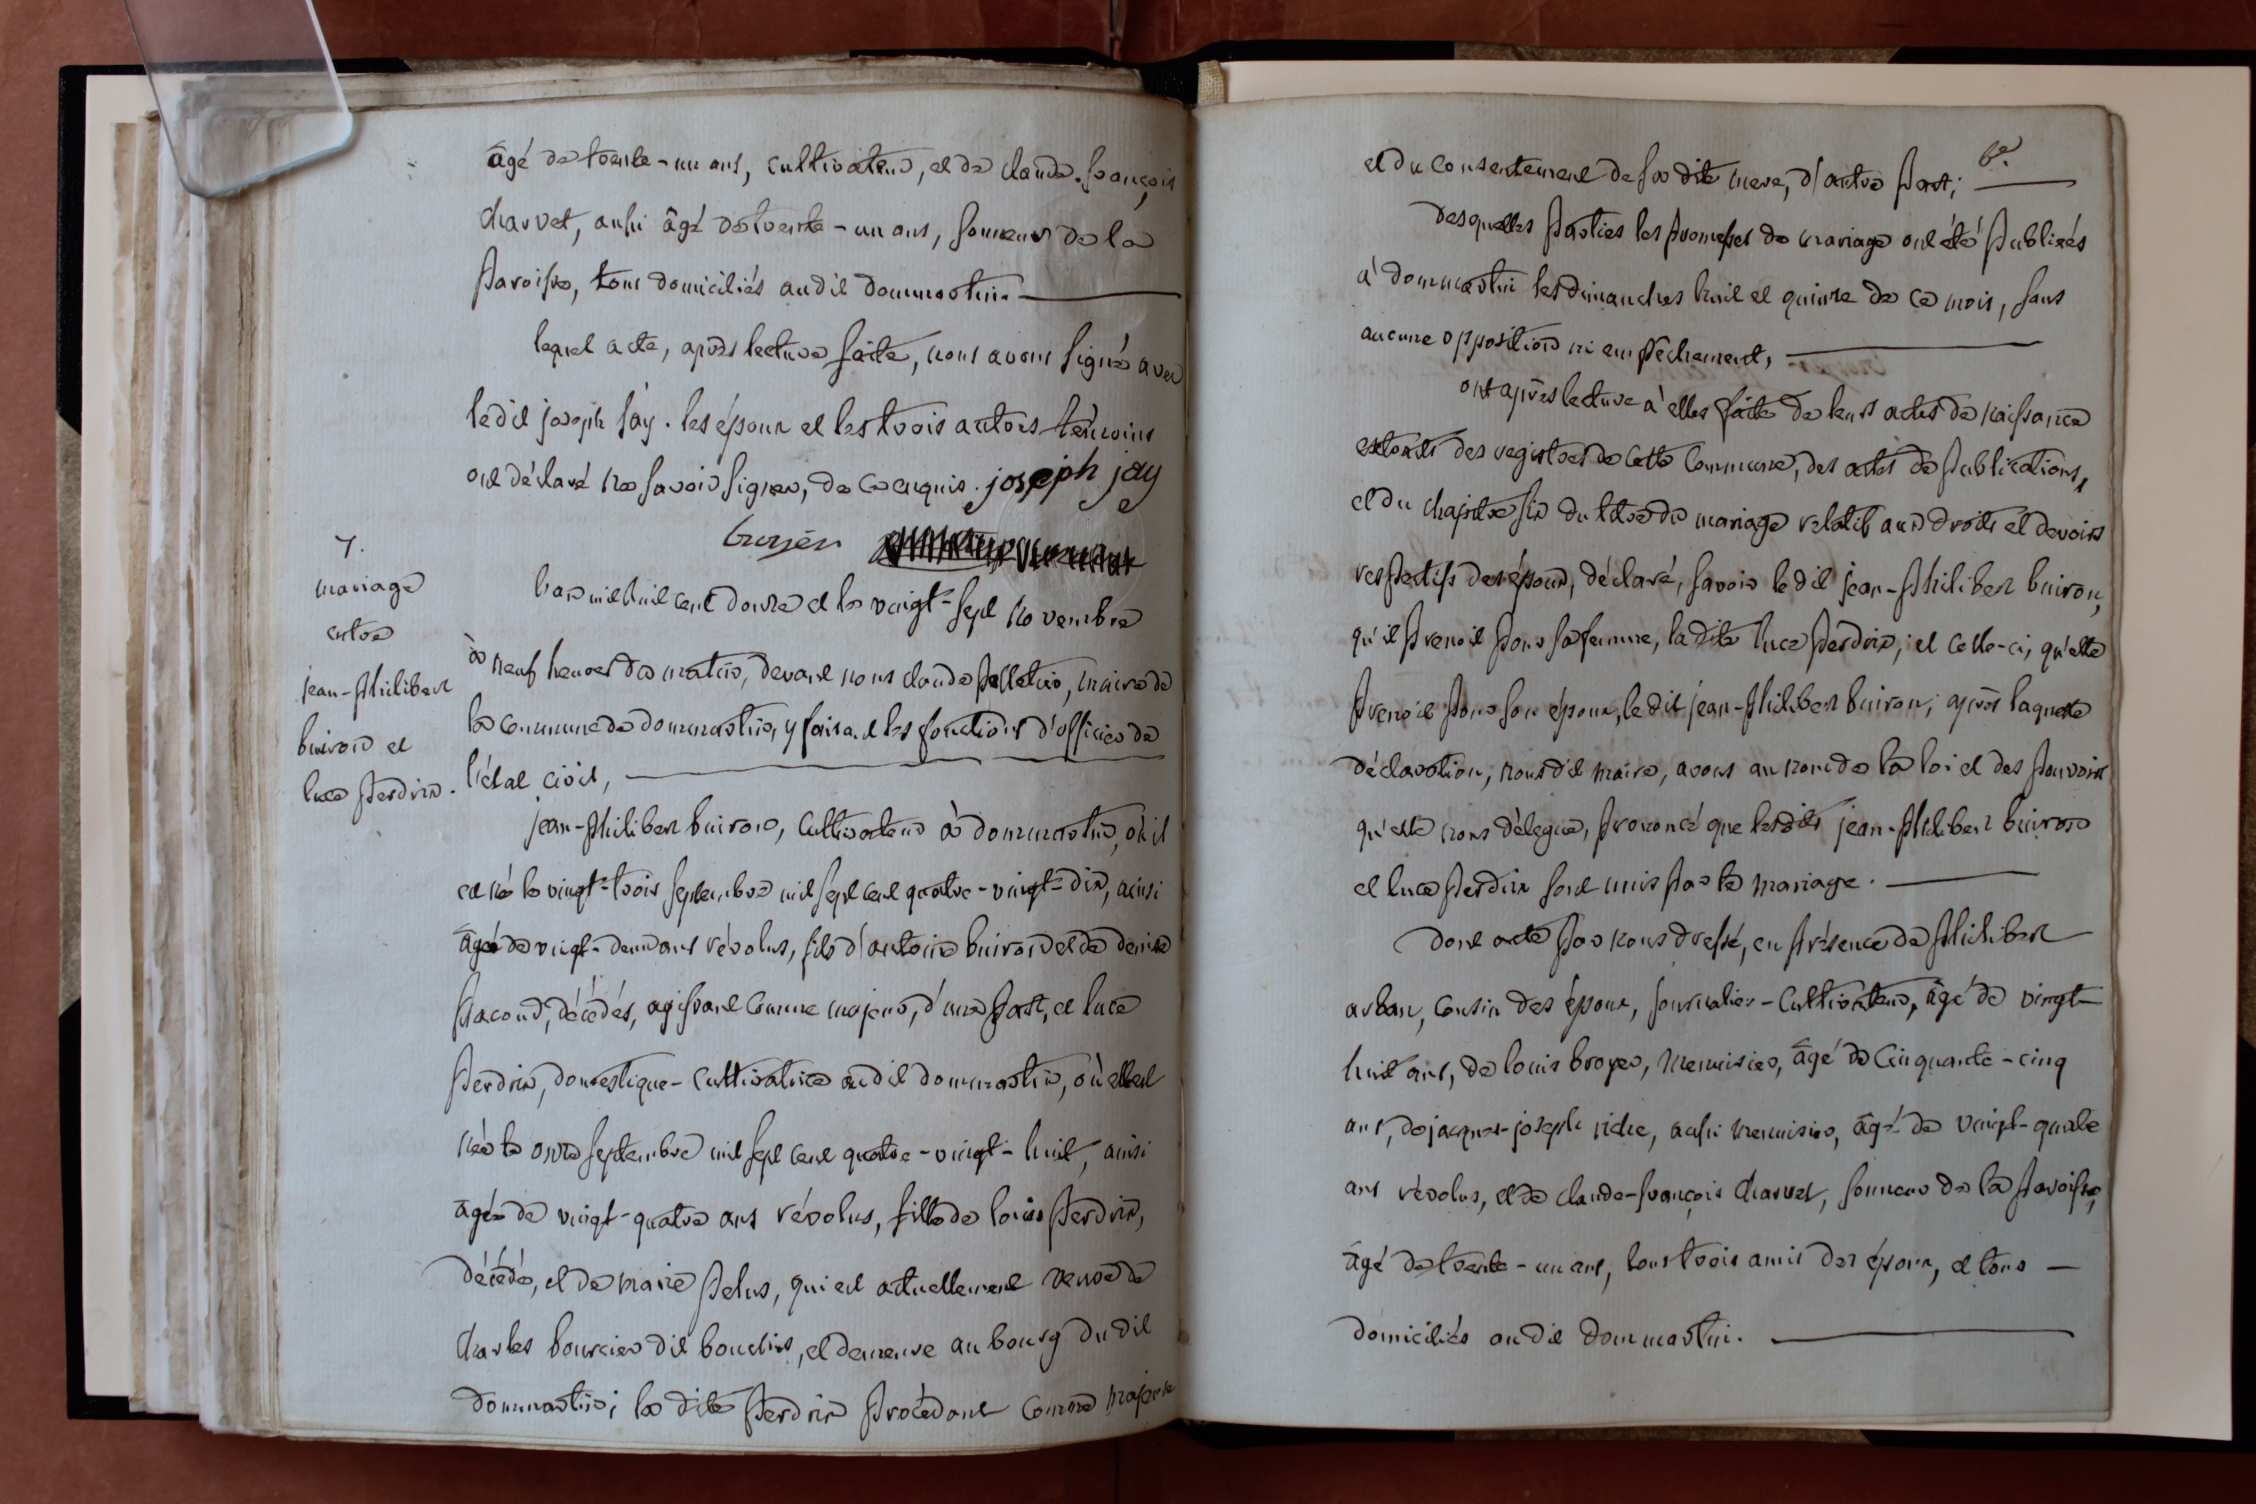 âgé de trente-un ans, cultivateur, et de claude-françois
charvet, aussi âgé de trente-un ans, sonneur de la
paroisse, tous domiciliés audit dommartin.
lequel acte, après lecture faite, nous avons signé avec
ledit joseph jay. les époux et les trois autres témoins
ont déclaré ne savoir signer, de ce enquis. joseph jay
7.
mariage
entre
jean-philibert
buiron et
luce perdrix.
L'an mil huit cent douze et le vingt-sept novembre
à neuf heures du matin, devant nous claude pelletier, maire de
la commune de dommartin, y faisant les fonctions d'officier de
l'état civil,
jean-philibert buiron, cultivateur à dommartin, où il
est né le vingt-trois septembre mil sept cent quatre-vingt-dix, ainsi
âgé de vingt-deux ans révolus, fils d'antoine buiron et de denise
pacoud, décédés, agissant comme majeur, d'une part, et luce
perdrix, domestique-cultivatrice audit dommartin, où elle est
née le onze septembre mil sept cent quatre-vingt-huit, ainsi
âgée de vingt-quatre ans révolus, fille de louis perdrix,
décédé, et de marie pelus, qui est actuellement veuve de
charles bourcier dit boudin, et demeure au bourg dudit
dommartin; la dite perdrix procédant comme majeure
6e.
et du consentement de sa dite mere, d'autre part;
desquelles parties les promesses de mariage ont été publiées
à dommartin les dimanches huit et quinze de ce mois, sans
aucune opposition ni empêchement,
ont après lecture à elles faite de leurs actes de naissance
extraits des registres de cette commune, des actes de publications,
et du chapitre six du titre du mariage relatif aux droits et devoirs
respectifs des époux, déclaré, savoir ledit jean-philibert buiron,
qu'il prenoit pour sa femme, la dite luce perdrix; et celle-ci, qu'elle
prenoit pour son époux, ledit jean-philibert buiron; après laquelle
déclaration, nous dit maire, avons au nom de la loi et des pouvoirs
qu'elle nous délegue, prononcé que lesdits jean-philibert buiron
et luce perdrix sont unis par le mariage.
dont acte par nous dressé, en présence de philibert
arban, cousin des époux, journalier-cultivateur, âgé de vingt-
huit ans, de louis broyer, menuisier, âgé de cinquante-cinq
ans, de jacques-joseph riche, aussi menuisier, âgé de vingt-quatre
ans révolus, et de claude-françois charvet, sonneur de la paroisse,
âgé de trente-un ans, tous trois amis des époux, et tous
domiciliés audit dommartin.